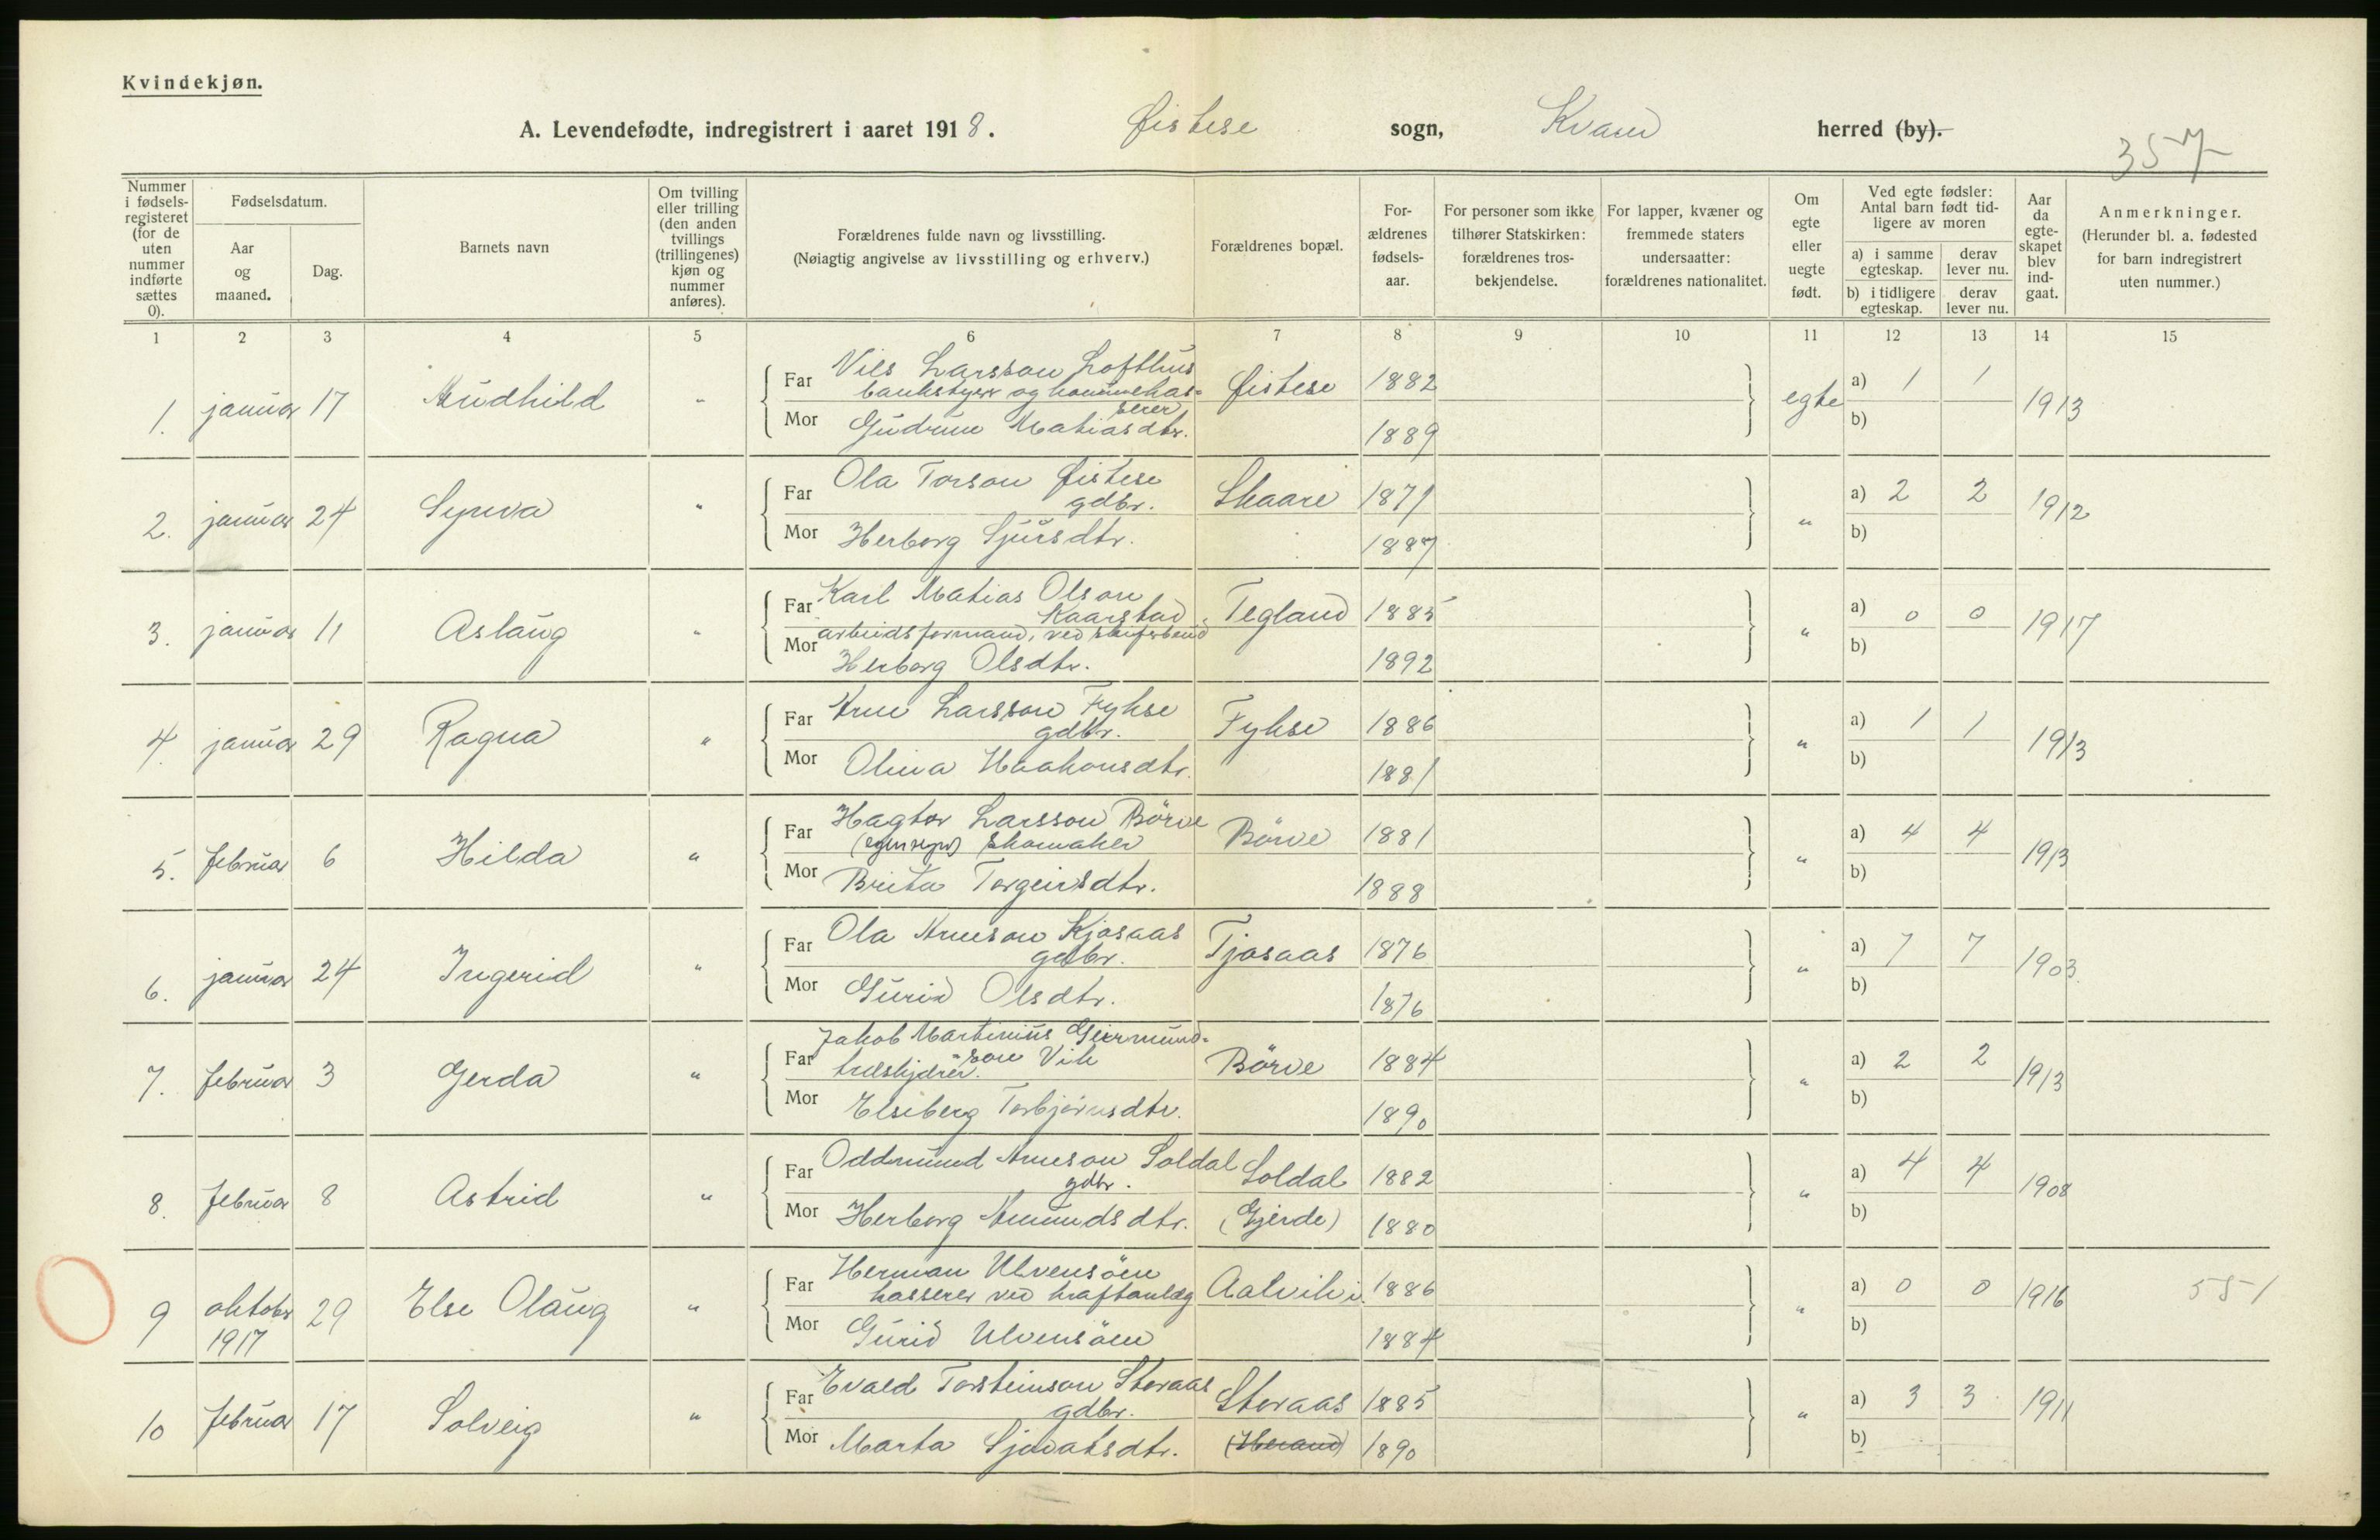 Kvindekjøn.
A. Levendefødte, indregistrert i aaret 1918. Øistese sogn, Kvam herred (by).
357
Nummer i fødselsregisteret (for de uten nummer indførte sættes 0).
Fødselsdatum.
Aar og maaned.
Dag.
Barnets navn
Om tvilling eller trilling (den anden tvillings (trillingenes) kjøn og nummer anføres).
Forældrenes fulde navn og livsstilling.
(Nøiagtig angivelse av livsstilling og erhverv.)
Forældrenes bopæl.
Forældrenes fødselsaar.
For personer som ikke tilhører Statskirken: forældrenes trosbekjendelse.
For lapper, kvæner og fremmede staters undersaatter: forældrenes nationalitet.
Om egte eller uegte født.
Ved egte fødsler: Antal barn født tidligere av moren
a) i samme egteskap. derav lever nu.
b) i tidligere egteskap. derav lever nu.
Aar da egteskapet blev indgaat.
Anmerkninger.
(Herunder bl. a. fødested for barn indregistrert uten nummer.)
1 2 3 4 5 6 7 8 9 10 11 12 13 14 15
1. januar 17 Audhild " Far Nils Larsson Lofthus Øistese 1882 egte a) 1 1 1913
bankstyrer og kommunekas=
serer
Mor Gudrun Matiasdtr. 1889 b)
2. januar 24 Synva " Far Ola Torson Øistese Skaare 1871 " a) 2 2 1912
gdbr.
Mor Herborg Sjursdtr. 1887 b)
3. januar 11 Aslaug " Far Karl Matias Olson Tegland 1885 " a) 0 0 1917
Kaarstad
arbeidsformand, ved skiferbrud
Mor Herborg Olsdtr. 1892 b)
4. januar 29 Ragna " Far Arne Larsson Fykse Fykse 1886 " a) 1 1 1913
gdbr.
Mor Oliva Haakonsdtr. 1881 b)
5. februar 6 Hilda " Far Hagtor Larsson Börve Börve 1881 " a) 4 4 1913
skomaker
Mor Brita Torgeirsdtr. 1888 b)
6. januar 24 Ingerid " Far Ola Arneson Kjosaas Tjosaas 1876 " a) 7 7 1903
gdbr.
Mor Gurid Olsdtr. 1876 b)
7. februar 3 Gerda " Far Jakob Martinius Geirmund=
son Vik Börve 1884 " a) 2 2 1913
treskjærer.
Mor Elseberg Torbjørnsdtr. 1890 b)
8. februar 8 Astrid " Far Oddmund Arneson Soldal Soldal 1882 " a) 4 4 1908
gdbr.
Mor Herborg Amundsdtr. (Gjerde) 1880 b)
9 oktober 29 Else Olaug " Far Herman Ulvensöen Aalvik i. 1886 " a) 0 0 1916 551
1917
kasserer ved kraftanlæg
Mor Gurid Ulvensöen 1884 b)
10 februar 17 Solveig " Far Evald Torsteinson Storaas Storaas 1885 " a) 3 3 1911
gdbr.
Mor Marta Sjovatsdtr. (Herand) 1890 b)